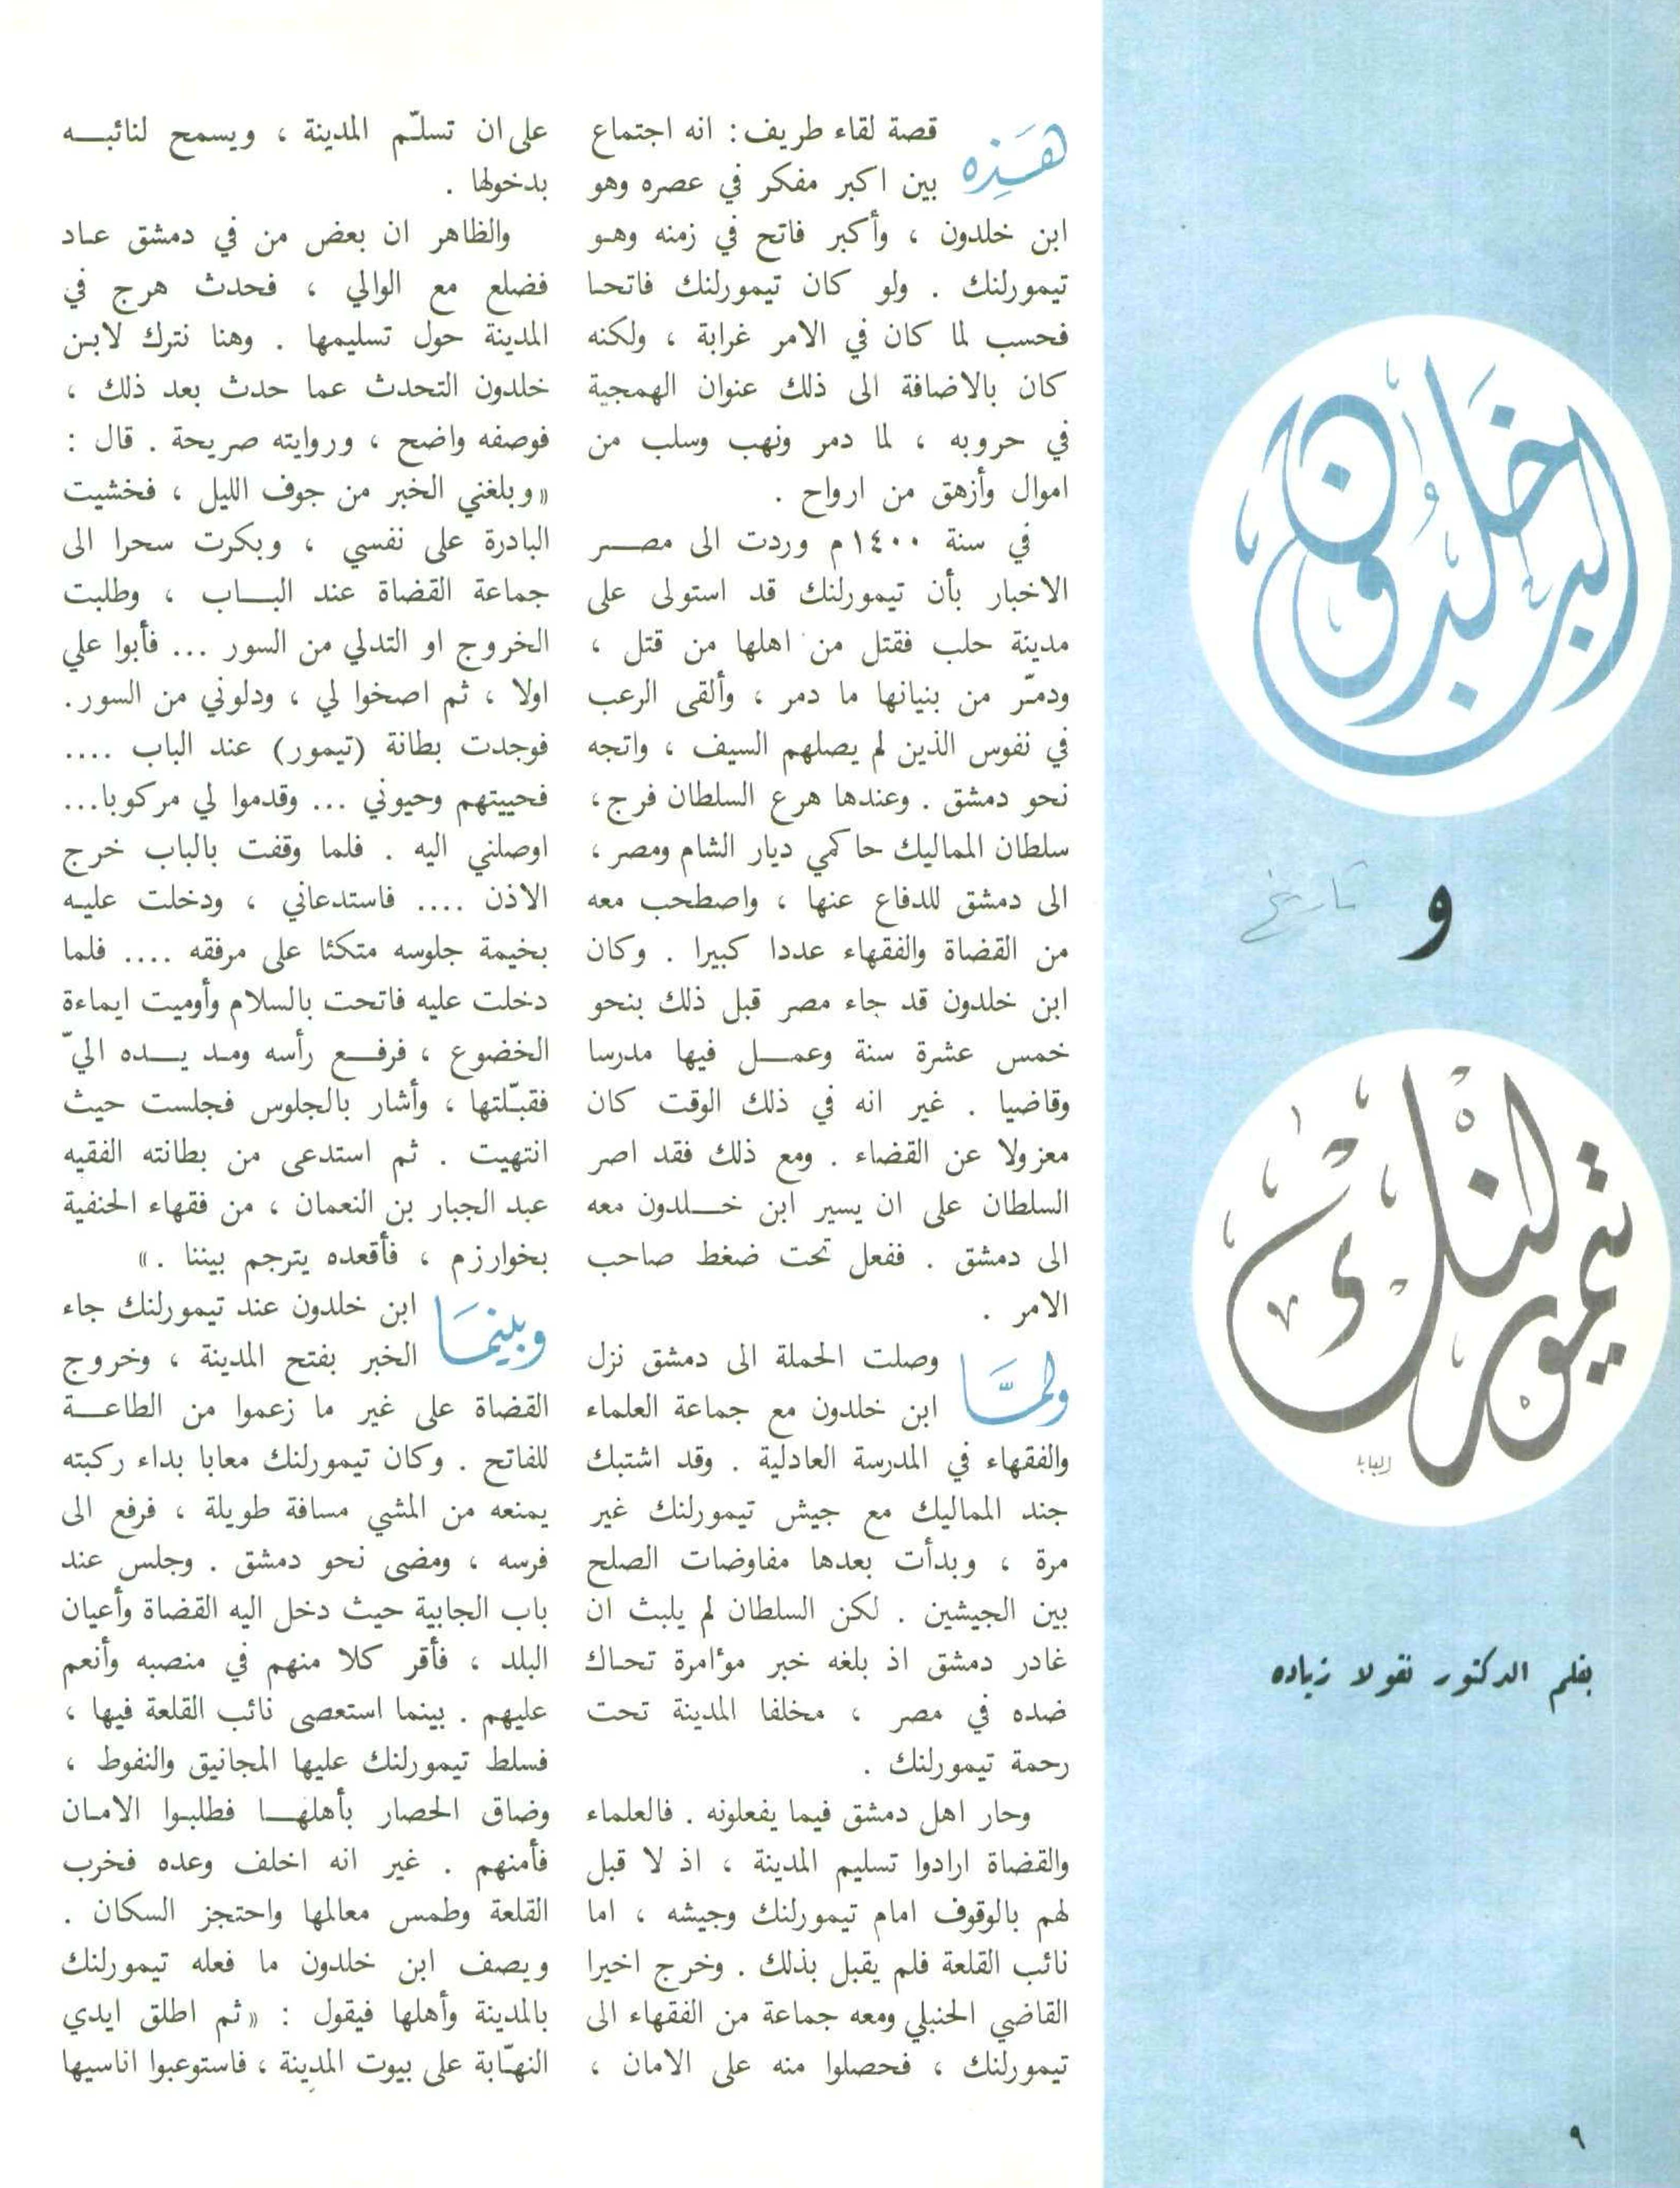 ابن خلدون
و
تاريخ
تيمورلنك
البابا
بقلم الدكتور نقولا زياده
هَذِه قصة لقاء طريف : انه اجتماع
بين اكبر مفكر في عصره وهو
ابن خلدون ، وأكبر فاتح في زمنه وهو
تيمورلنك . ولو كان تيمورلنك فاتحا
فحسب لما كان في الامر غرابة ، ولكنه
كان بالاضافة الى ذلك عنوان الهمجية
في حروبه ، لما دمر ونهب وسلب من
اموال وأزهق من ارواح .
في سنة ١٤٠٠م وردت الى مصر
الاخبار بأن تيمورلنك قد استولى على
مدينة حلب فقتل من اهلها من قتل ،
ودمّر من بنيانها ما دمر ، وألقى الرعب
في نفوس الذين لم يصلهم السيف ، واتجه
نحو دمشق . وعندها هرع السلطان فرج ،
سلطان المماليك حاكمي ديار الشام ومصر ،
الى دمشق للدفاع عنها ، واصطحب معه
من القضاة والفقهاء عددا كبيرا . وكان
ابن خلدون قد جاء مصر قبل ذلك بنحو
خمس عشرة سنة وعمل فيها مدرسا
وقاضيا . غير انه في ذلك الوقت كان
معزولا عن القضاء . ومع ذلك فقد اصر
السلطان على ان يسير ابن خلدون معه
الى دمشق . ففعل تحت ضغط صاحب
الامر .
ولمَّا وصلت الحملة الى دمشق نزل
ابن خلدون مع جماعة العلماء
والفقهاء في المدرسة العادلية . وقد اشتبك
جند المماليك مع جيش تيمورلنك غير
مرة ، وبدأت بعدها مفاوضات الصلح
بين الجيشين . لكن السلطان لم يلبث ان
غادر دمشق اذ بلغه خبر مؤامرة تحاك
ضده في مصر ، مخلفا المدينة تحت
رحمة تيمورلنك .
وحار اهل دمشق فيما يفعلونه . فالعلماء
والقضاة ارادوا تسليم المدينة ، اذ لا قبل
لهم بالوقوف امام تيمورلنك وجيشه ، اما
نائب القلعة فلم يقبل بذلك . وخرج اخيرا
القاضي الحنبلي ومعه جماعة من الفقهاء الى
تيمورلنك ، فحصلوا منه على الامان ،
على ان تسلّم المدينة ، ويسمح لنائبه
بدخولها .
والظاهر ان بعض من في دمشق عاد
فضلع مع الوالي ، فحدث هرج في
المدينة حول تسليمها . وهنا نترك لابن
خلدون التحدث عما حدث بعد ذلك ،
فوصفه واضح ، وروايته صريحة . قال :
« وبلغني الخبر من جوف الليل ، فخشيت
البادرة على نفسي ، وبكرت سحرا الى
جماعة القضاة عند الباب ، وطلبت
الخروج او التدلي من السور ... فأبوا علي
اولا ، ثم اصخوا لي ، ودلوني من السور.
فوجدت بطانة (تيمور) عند الباب ....
فحييتهم وحيوني ... وقدموا لي مركوبا...
اوصلني اليه . فلما وقفت بالباب خرج
الاذن .... فاستدعاني ، ودخلت عليه
بخيمة جلوسه متكئا على مرفقه .... فلما
دخلت عليه فاتحت بالسلام وأوميت ايماءة
الخضوع ، فرفع رأسه ومد يده اليّ
فقبّلتها ، وأشار بالجلوس فجلست حيث
انتهيت . ثم استدعى من بطانته الفقيه
عبد الجبار بن النعمان ، من فقهاء الحنفية
بخوارزم ، فأقعده يترجم بيننا . »
وبينمَا ابن خلدون عند تيمورلنك جاء
الخبر بفتح المدينة ، وخروج
القضاة على غير ما زعموا من الطاعة
للفاتح . وكان تيمورلنك معابا بداء ركبته
يمنعه من المشي مسافة طويلة ، فرفع الى
فرسه ، ومضى نحو دمشق . وجلس عند
باب الجابية حيث دخل اليه القضاة وأعيان
البلد ، فأقر كلا منهم في منصبه وأنعم
عليهم . بينما استعصى نائب القلعة فيها ،
فسلط تيمورلنك عليها المجانيق والنفوط ،
وضاق الحصار بأهلها فطلبوا الامان
فأمنهم . غير انه اخلف وعده فخرب
القلعة وطمس معالمها واحتجز السكان .
ويصف ابن خلدون ما فعله تيمورلنك
بالمدينة وأهلها فيقول : « ثم اطلق ايدي
النهّابة على بيوت المدينة ، فاستوعبوا اناسيها
٩